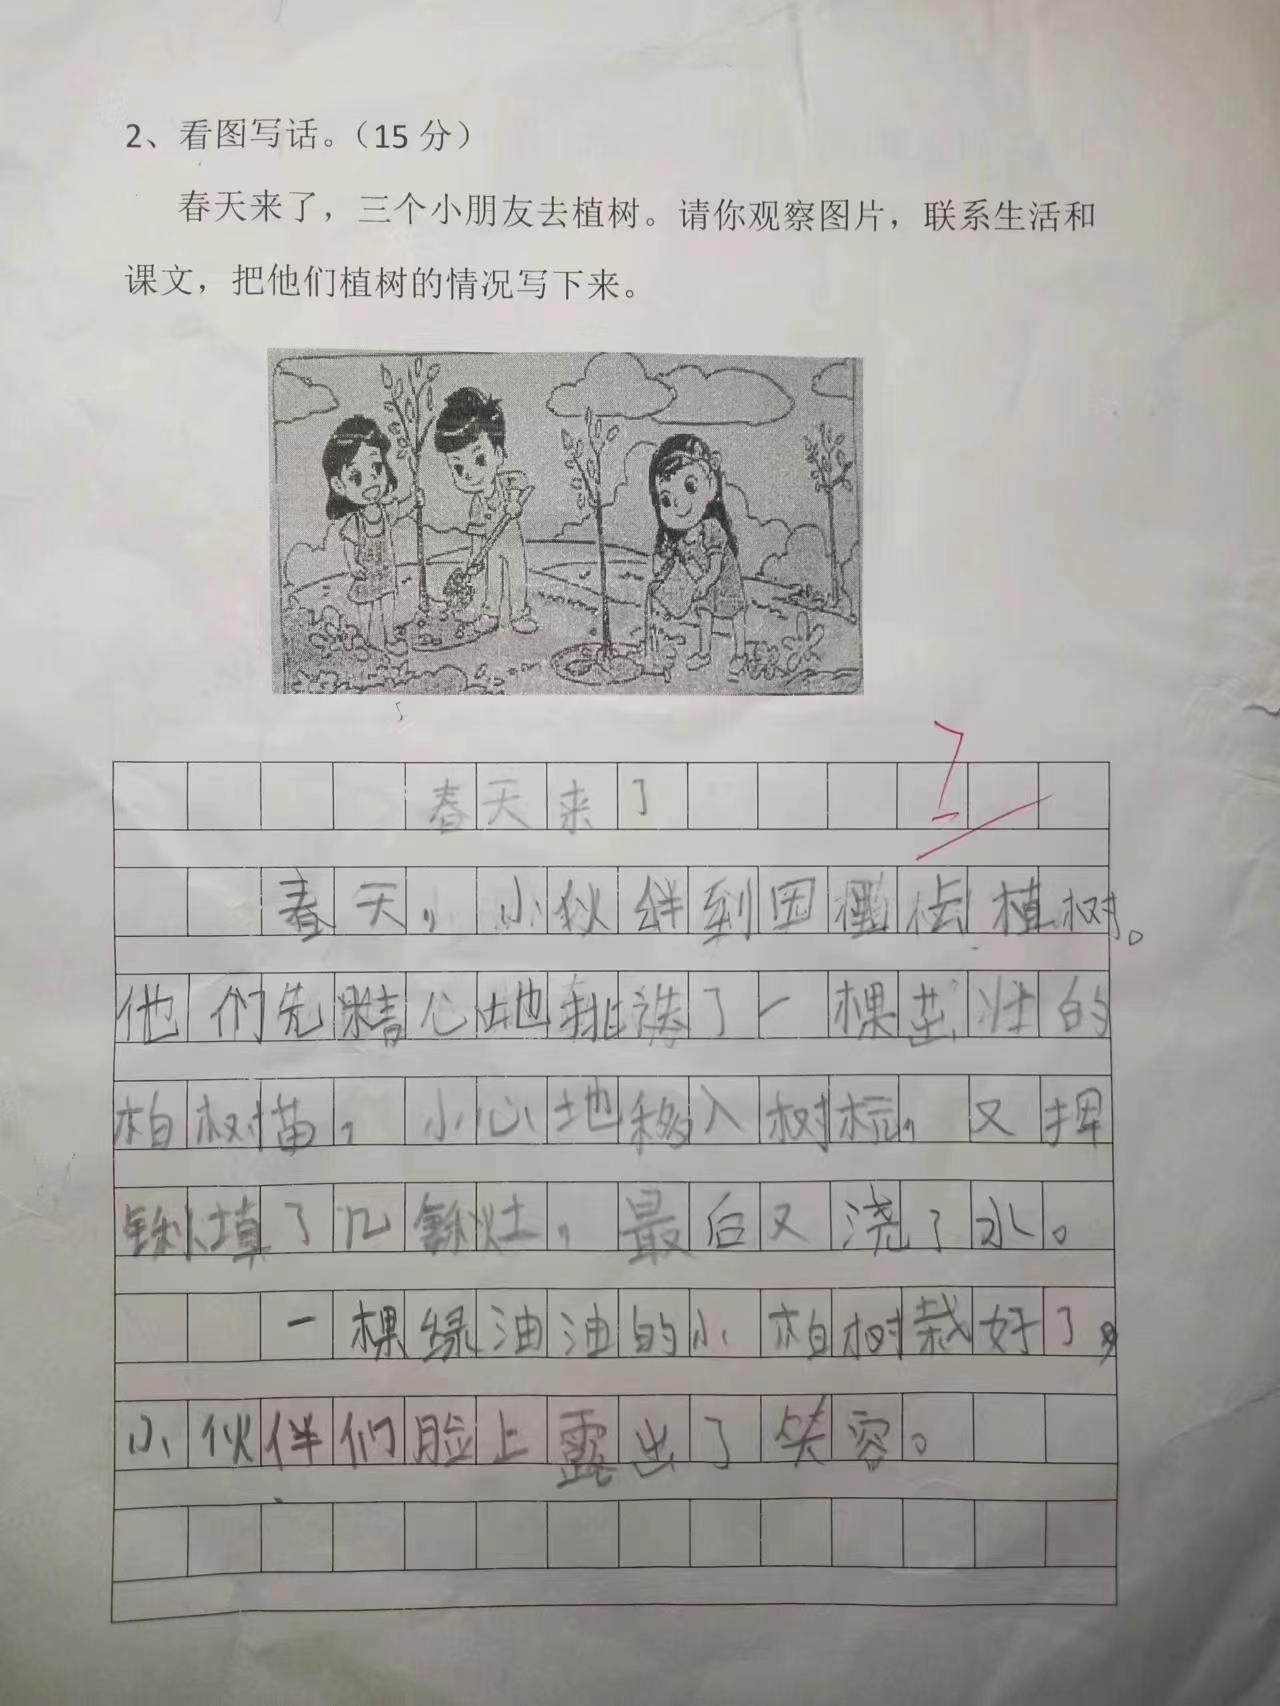 2、看图写话。（15分）
春天来了，三个小朋友去植树。请你观察图片，联系生活和
课文，把他们植树的情况写下来。
春天来了
春天，小伙伴到田植树。
他们先精心地挑选了一棵茁壮的
柏树苗，小心地移入树坑，又挥
锹填了几锹土，最后又浇了水。
一棵绿油油的小柏树栽好了，
小伙伴们脸上露出了笑容。